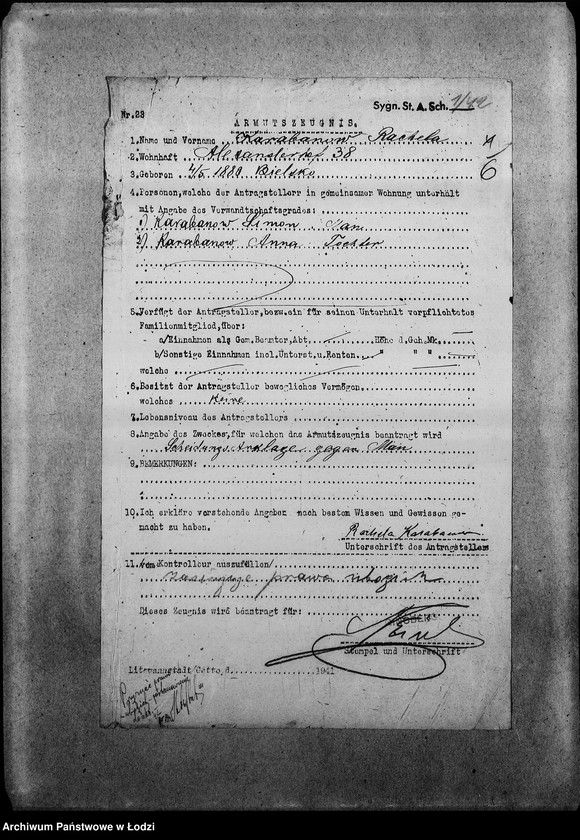 Sygn. St. A. Sch. 1/42
Nr.23
ARMUTSZEUGNIS.
1. Name und Vorname Karabanow Rachela
2. Wohnhaft Alexanderhof 38
3. Geboren 4/5 1889 Bielsko
6
4. Personen, welche der Antragsteller in gemeinsamer Wohnung unterhält
mit Angabe des Verwandtschaftsgrades:
1) Karabanow Simon
2) Karabanow Anna Tochter
5. Verfügt der Antragsteller, bezw. ein für seinen Unterhalt verpflichtetes
Familienmitglied, über:
a/Einnahmen als Gem. Beamter, Abt. Höhe d. Geh. Mk.
b/Sonstige Einnahmen incl. Unterst. u. Renten. " " "
welche
6. Besitzt der Antragsteller bewegliches Vermögen
welches Keine
7. Lebensniveau des Antragstellers
8. Angabe des Zweckes, für welchen das Armutszeugnis beantragt wird
Scheidungs Anklage gegen Man
9. BEMERKUNGEN:
10. Ich erkläre vorstehende Angaben nach bestem Wissen und Gewissen ge-
macht zu haben.
Rachela Karabanow
Unterschrift des Antragstellers
11. /vom Kontrolleur auszufüllen/
prawa ubogich
Dieses Zeugnis wird beantragt für:
Stempel und Unterschrift
Litzmannstadt Getto, d. 1941
Archiwum Państwowe w Łodzi